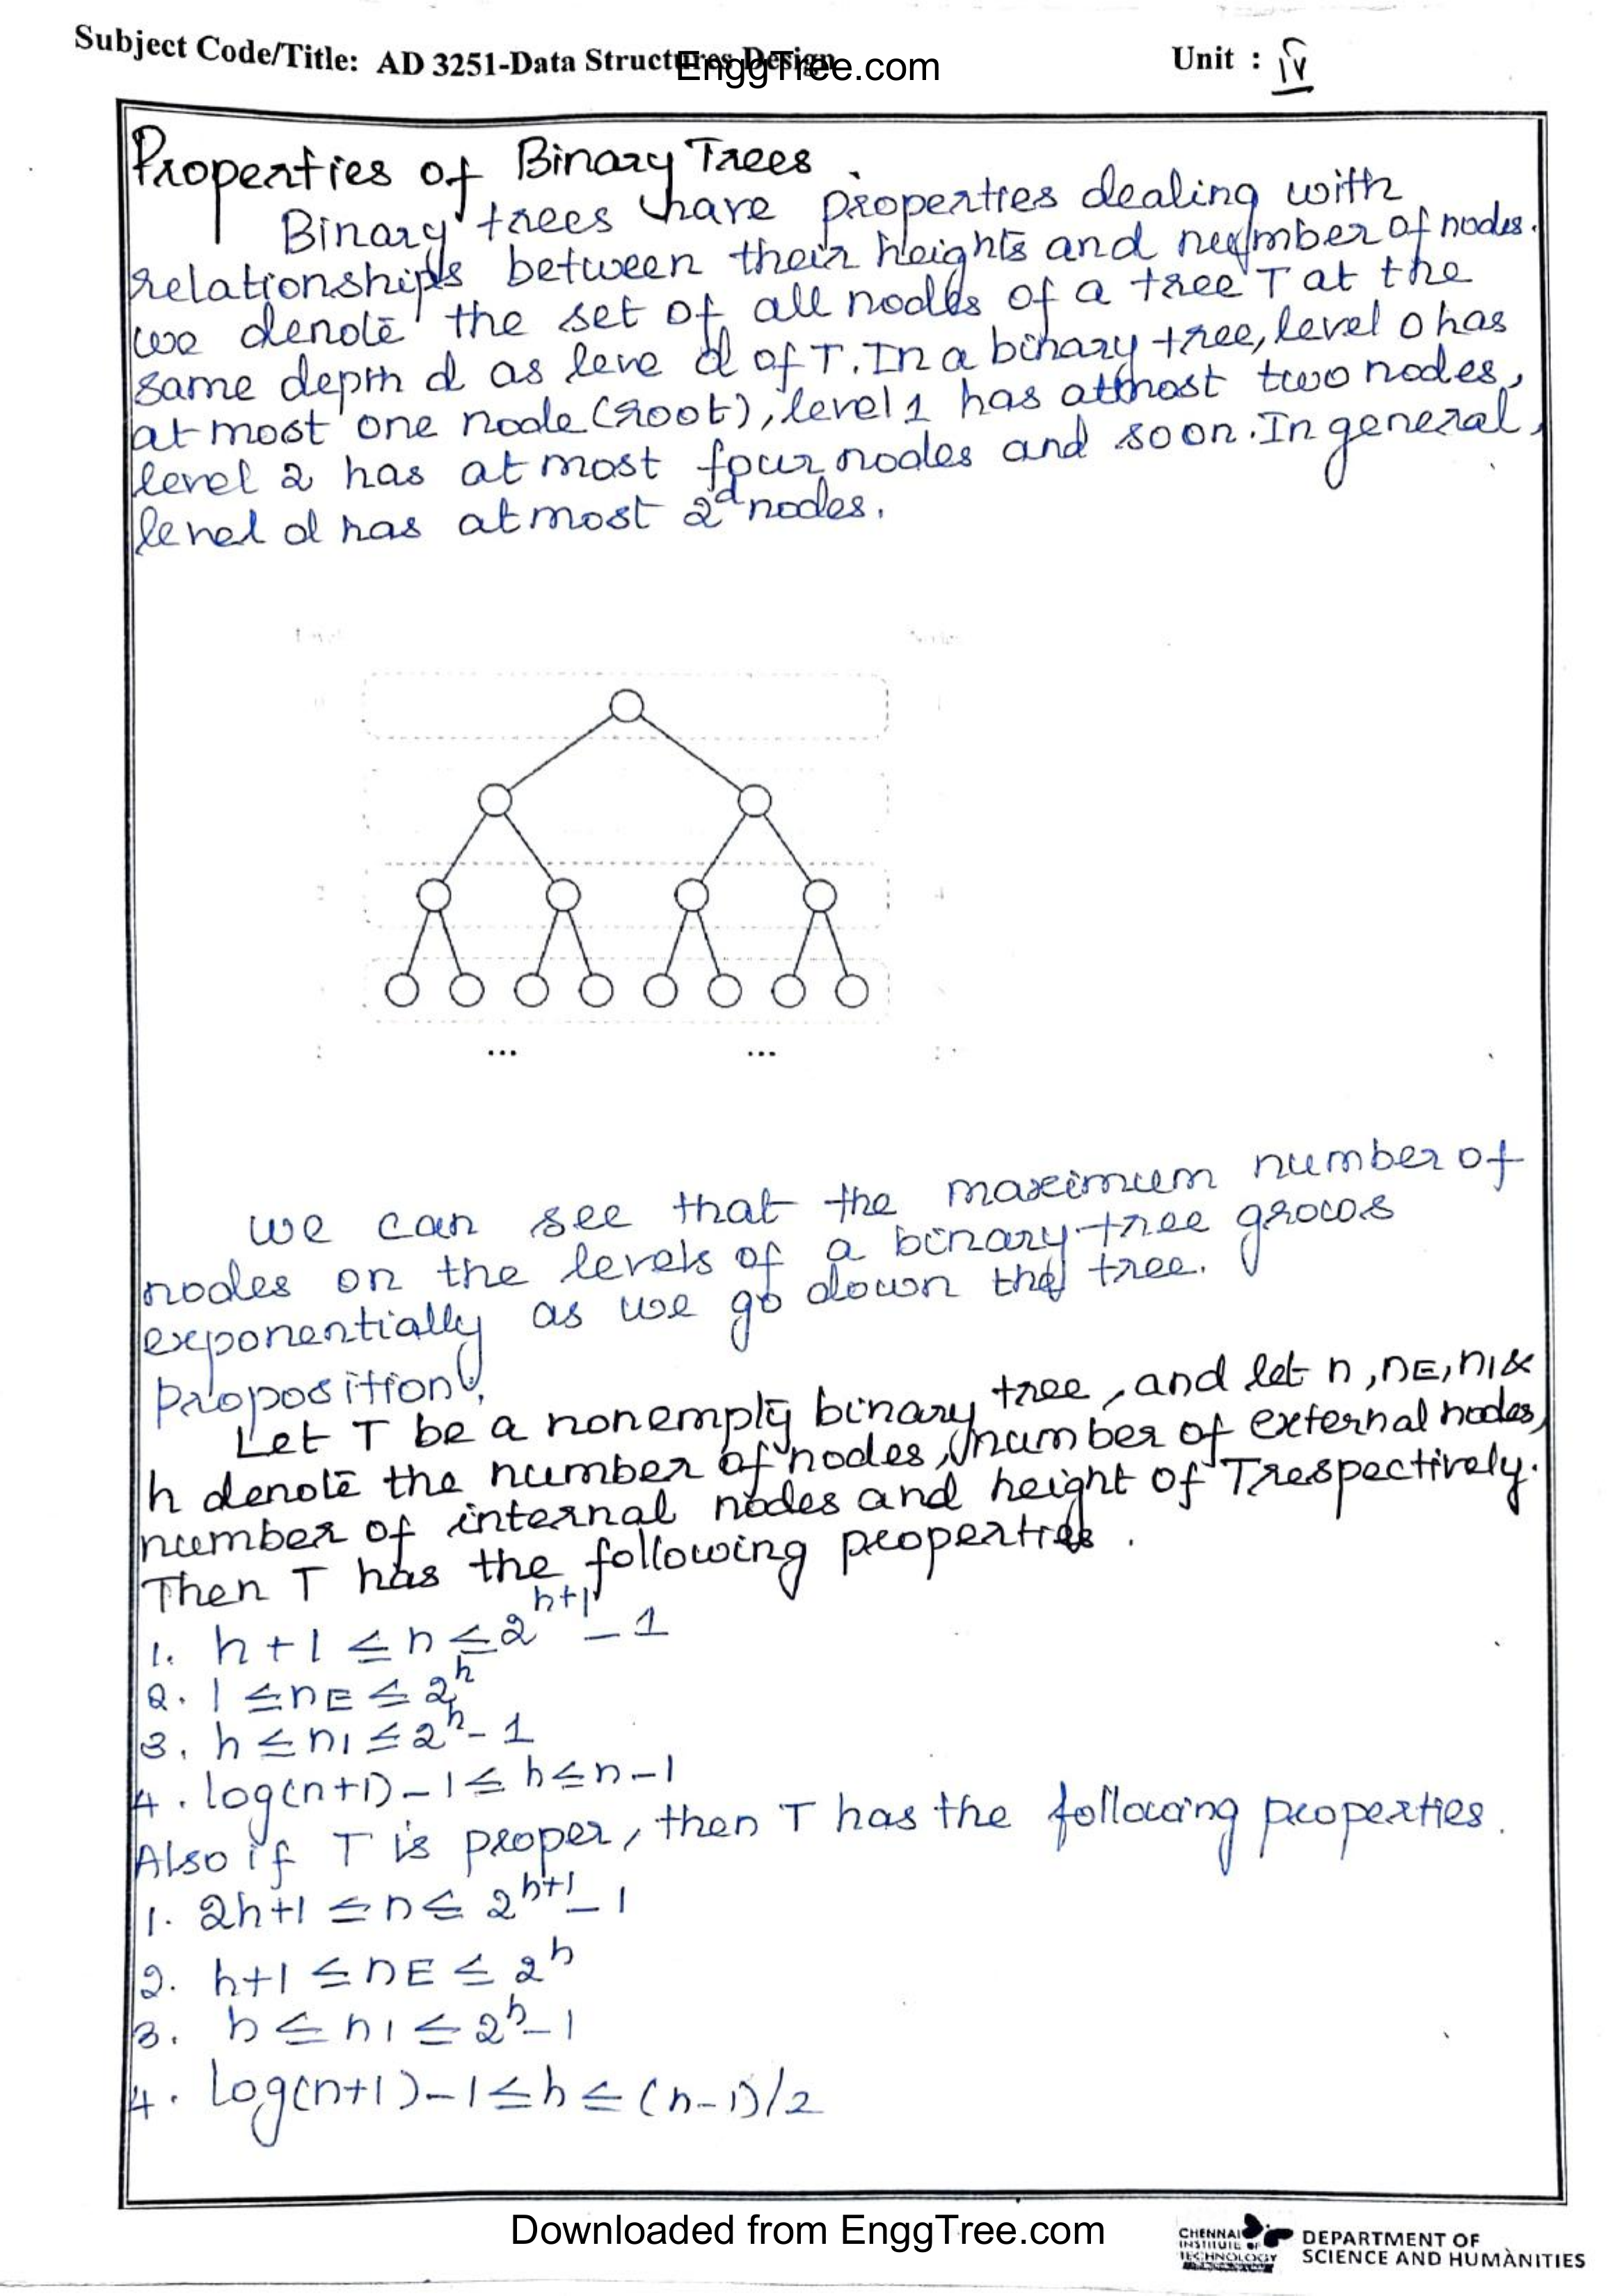 Subject Code/Title: AD 3251-Data Structures Design
EnggTree.com
Unit : IV
Properties of Binary Trees.
Binary trees have properties dealing with
relationships between their heights and number of nodes.
we denote the set of all nodes of a tree T at the
same depth d as leve d of T. In a binary tree, level 0 has
at most one node (root), level 1 has atmost two nodes,
level 2 has at most four nodes and soon. In general,
level d has atmost 2^d nodes.
2
4
... ...
we can see that the maximum number of
nodes on the levels of a binary tree grows
exponentially as we go down the tree.
Proposition:
Let T be a nonempty binary tree, and let n, nE, nI &
h denote the number of nodes, number of external nodes,
number of internal nodes and height of T respectively.
Then T has the following properties.
1. h+1 ≤ n ≤ 2^h+1 - 1
2. 1 ≤ nE ≤ 2^h
3. h ≤ nI ≤ 2^h - 1
4. log(n+1) - 1 ≤ h ≤ n-1
Also if T is proper, then T has the following properties.
1. 2h+1 ≤ n ≤ 2^h+1 - 1
2. h+1 ≤ nE ≤ 2^h
3. h ≤ nI ≤ 2^h - 1
4. log(n+1) - 1 ≤ h ≤ (n-1)/2
Downloaded from EnggTree.com
CHENNAI
INSTITUTE OF
TECHNOLOGY
DEPARTMENT OF
SCIENCE AND HUMANITIES